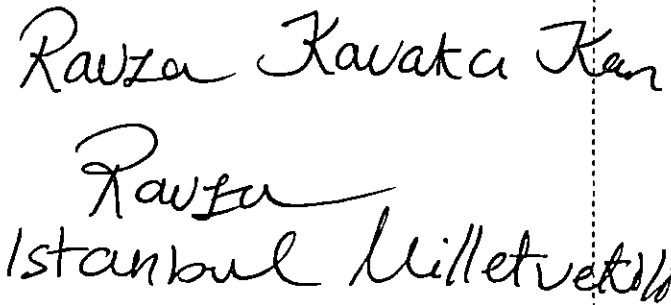 Ravza Kavakcı Kan
Ravza
Istanbul Milletvekili